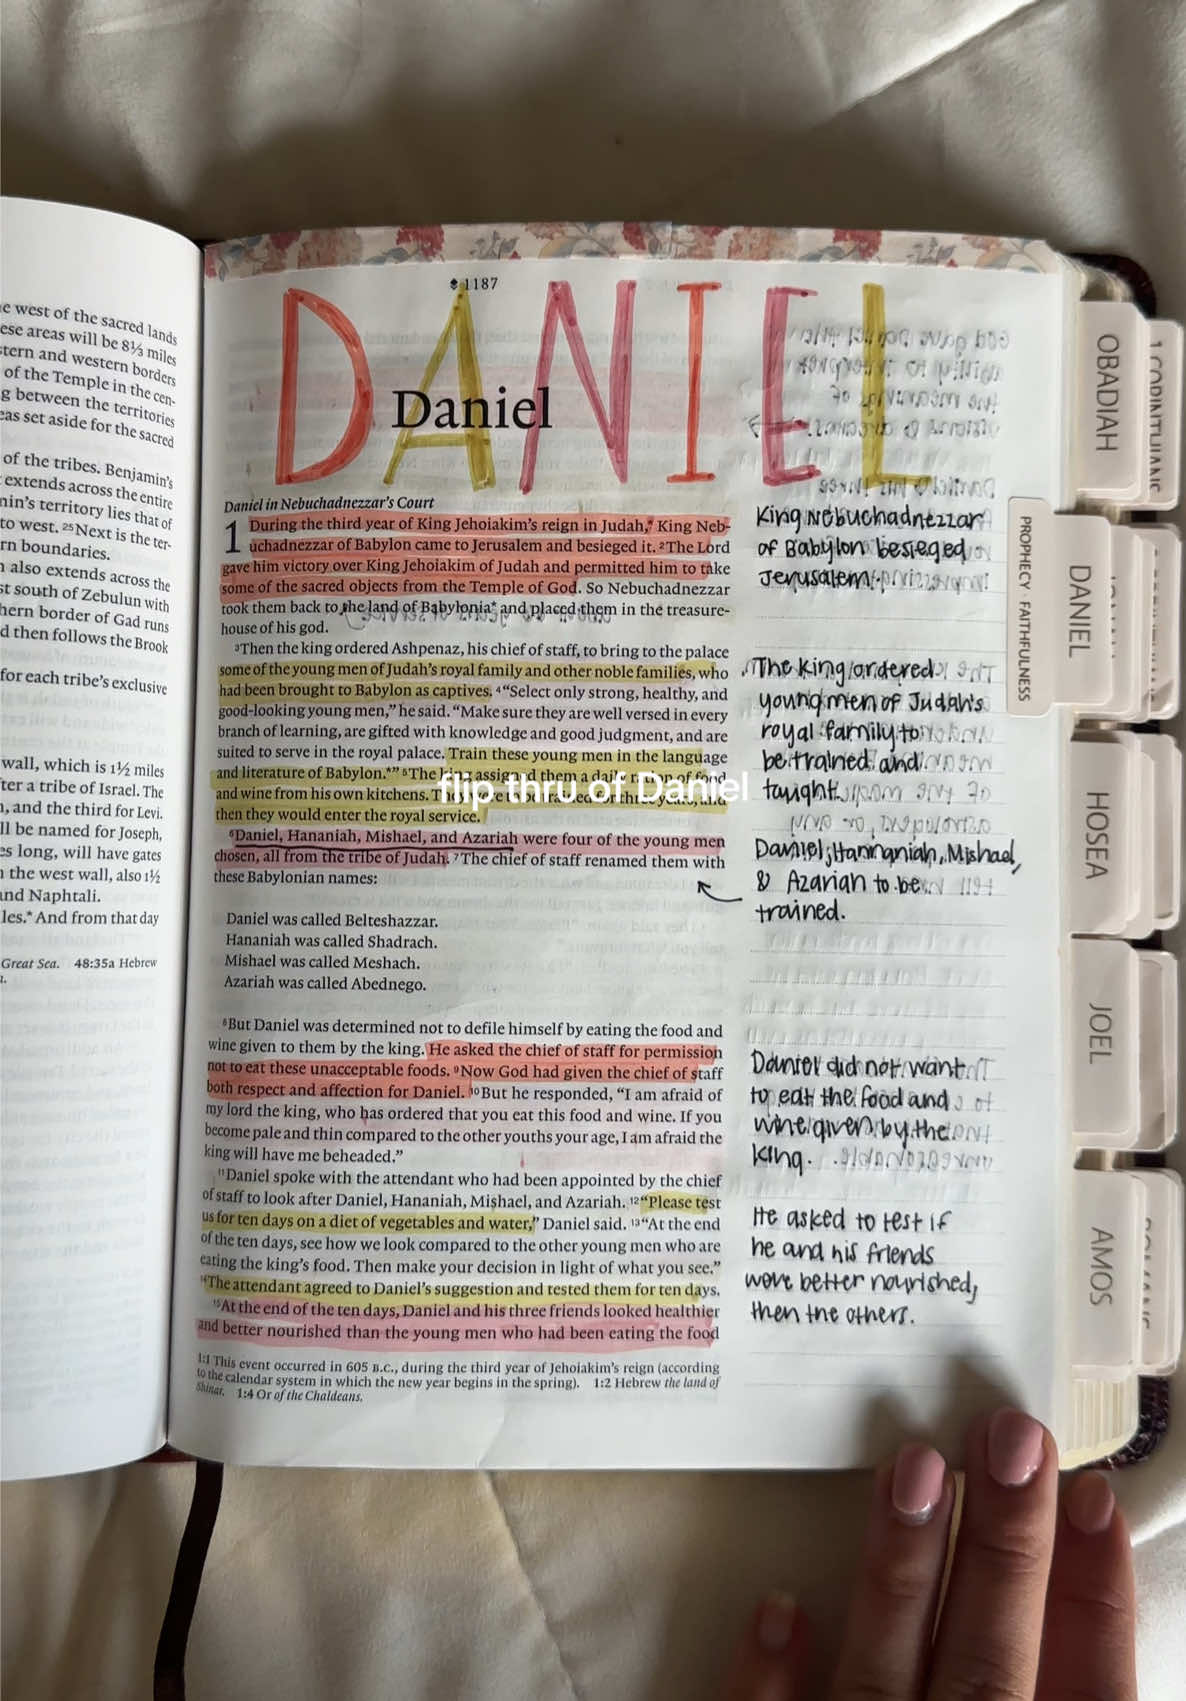 e west of the sacred lands
ese areas will be 8⅓ miles
tern and western borders
of the Temple in the cen-
g between the territories
eas set aside for the sacred
of the tribes. Benjamin's
extends across the entire
min's territory lies that of
to west. 25Next is the ter-
rn boundaries.
n also extends across the
st south of Zebulun with
hern border of Gad runs
d then follows the Brook
for each tribe's exclusive
wall, which is 1½ miles
ter a tribe of Israel. The
, and the third for Levi.
ll be named for Joseph,
es long, will have gates
the west wall, also 1½
and Naphtali.
les.* And from that day
Great Sea. 48:35a Hebrew
1187
DANIEL
Daniel
Daniel in Nebuchadnezzar's Court
1 During the third year of King Jehoiakim's reign in Judah,* King Neb-
uchadnezzar of Babylon came to Jerusalem and besieged it. 2The Lord
gave him victory over King Jehoiakim of Judah and permitted him to take
some of the sacred objects from the Temple of God. So Nebuchadnezzar
took them back to the land of Babylonia* and placed them in the treasure-
house of his god.
3Then the king ordered Ashpenaz, his chief of staff, to bring to the palace
some of the young men of Judah's royal family and other noble families, who
had been brought to Babylon as captives. 4"Select only strong, healthy, and
good-looking young men," he said. "Make sure they are well versed in every
branch of learning, are gifted with knowledge and good judgment, and are
suited to serve in the royal palace. Train these young men in the language
and literature of Babylon.*" 5The king assigned them a daily ration of food
and wine from his own kitchens. They were to be trained for three years, and
then they would enter the royal service.
6Daniel, Hananiah, Mishael, and Azariah were four of the young men
chosen, all from the tribe of Judah. 7The chief of staff renamed them with
these Babylonian names:
Daniel was called Belteshazzar.
Hananiah was called Shadrach.
Mishael was called Meshach.
Azariah was called Abednego.
8But Daniel was determined not to defile himself by eating the food and
wine given to them by the king. He asked the chief of staff for permission
not to eat these unacceptable foods. 9Now God had given the chief of staff
both respect and affection for Daniel. 10But he responded, "I am afraid of
my lord the king, who has ordered that you eat this food and wine. If you
become pale and thin compared to the other youths your age, I am afraid the
king will have me beheaded."
11Daniel spoke with the attendant who had been appointed by the chief
of staff to look after Daniel, Hananiah, Mishael, and Azariah. 12"Please test
us for ten days on a diet of vegetables and water," Daniel said. 13"At the end
of the ten days, see how we look compared to the other young men who are
eating the king's food. Then make your decision in light of what you see."
14The attendant agreed to Daniel's suggestion and tested them for ten days.
15At the end of the ten days, Daniel and his three friends looked healthier
and better nourished than the young men who had been eating the food
1:1 This event occurred in 605 B.C., during the third year of Jehoiakim's reign (according
to the calendar system in which the new year begins in the spring). 1:2 Hebrew the land of
Shinar. 1:4 Or of the Chaldeans.
flip thru of Daniel
King Nebuchadnezzar
of Babylon besieged
Jerusalem.
The king ordered
young men of Judah's
royal family to
be trained and
taught.
Daniel, Haninaniah, Mishael,
& Azariah to be
trained.
Daniel did not want
to eat the food and
wine given by the
king.
He asked to test if
he and his friends
were better nourished,
then the others.
PROPHECY · FAITHFULNESS
OBADIAH
DANIEL
HOSEA
JOEL
AMOS
1 CORINTHIANS
ROMANS